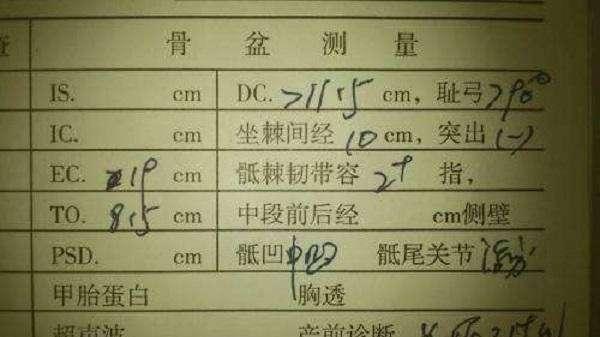 骨盆测量
IS. cm DC. >11.5 cm，耻弓 >90°
IC. cm 坐棘间经 10 cm，突出 (-)
EC. 19 cm 骶棘韧带容 2+ 指，
TO. 8.5 cm 中段前后经 cm侧壁
PSD. cm 骶凹 中凹 骶尾关节 活动
甲胎蛋白 胸透
超声波 产前诊断